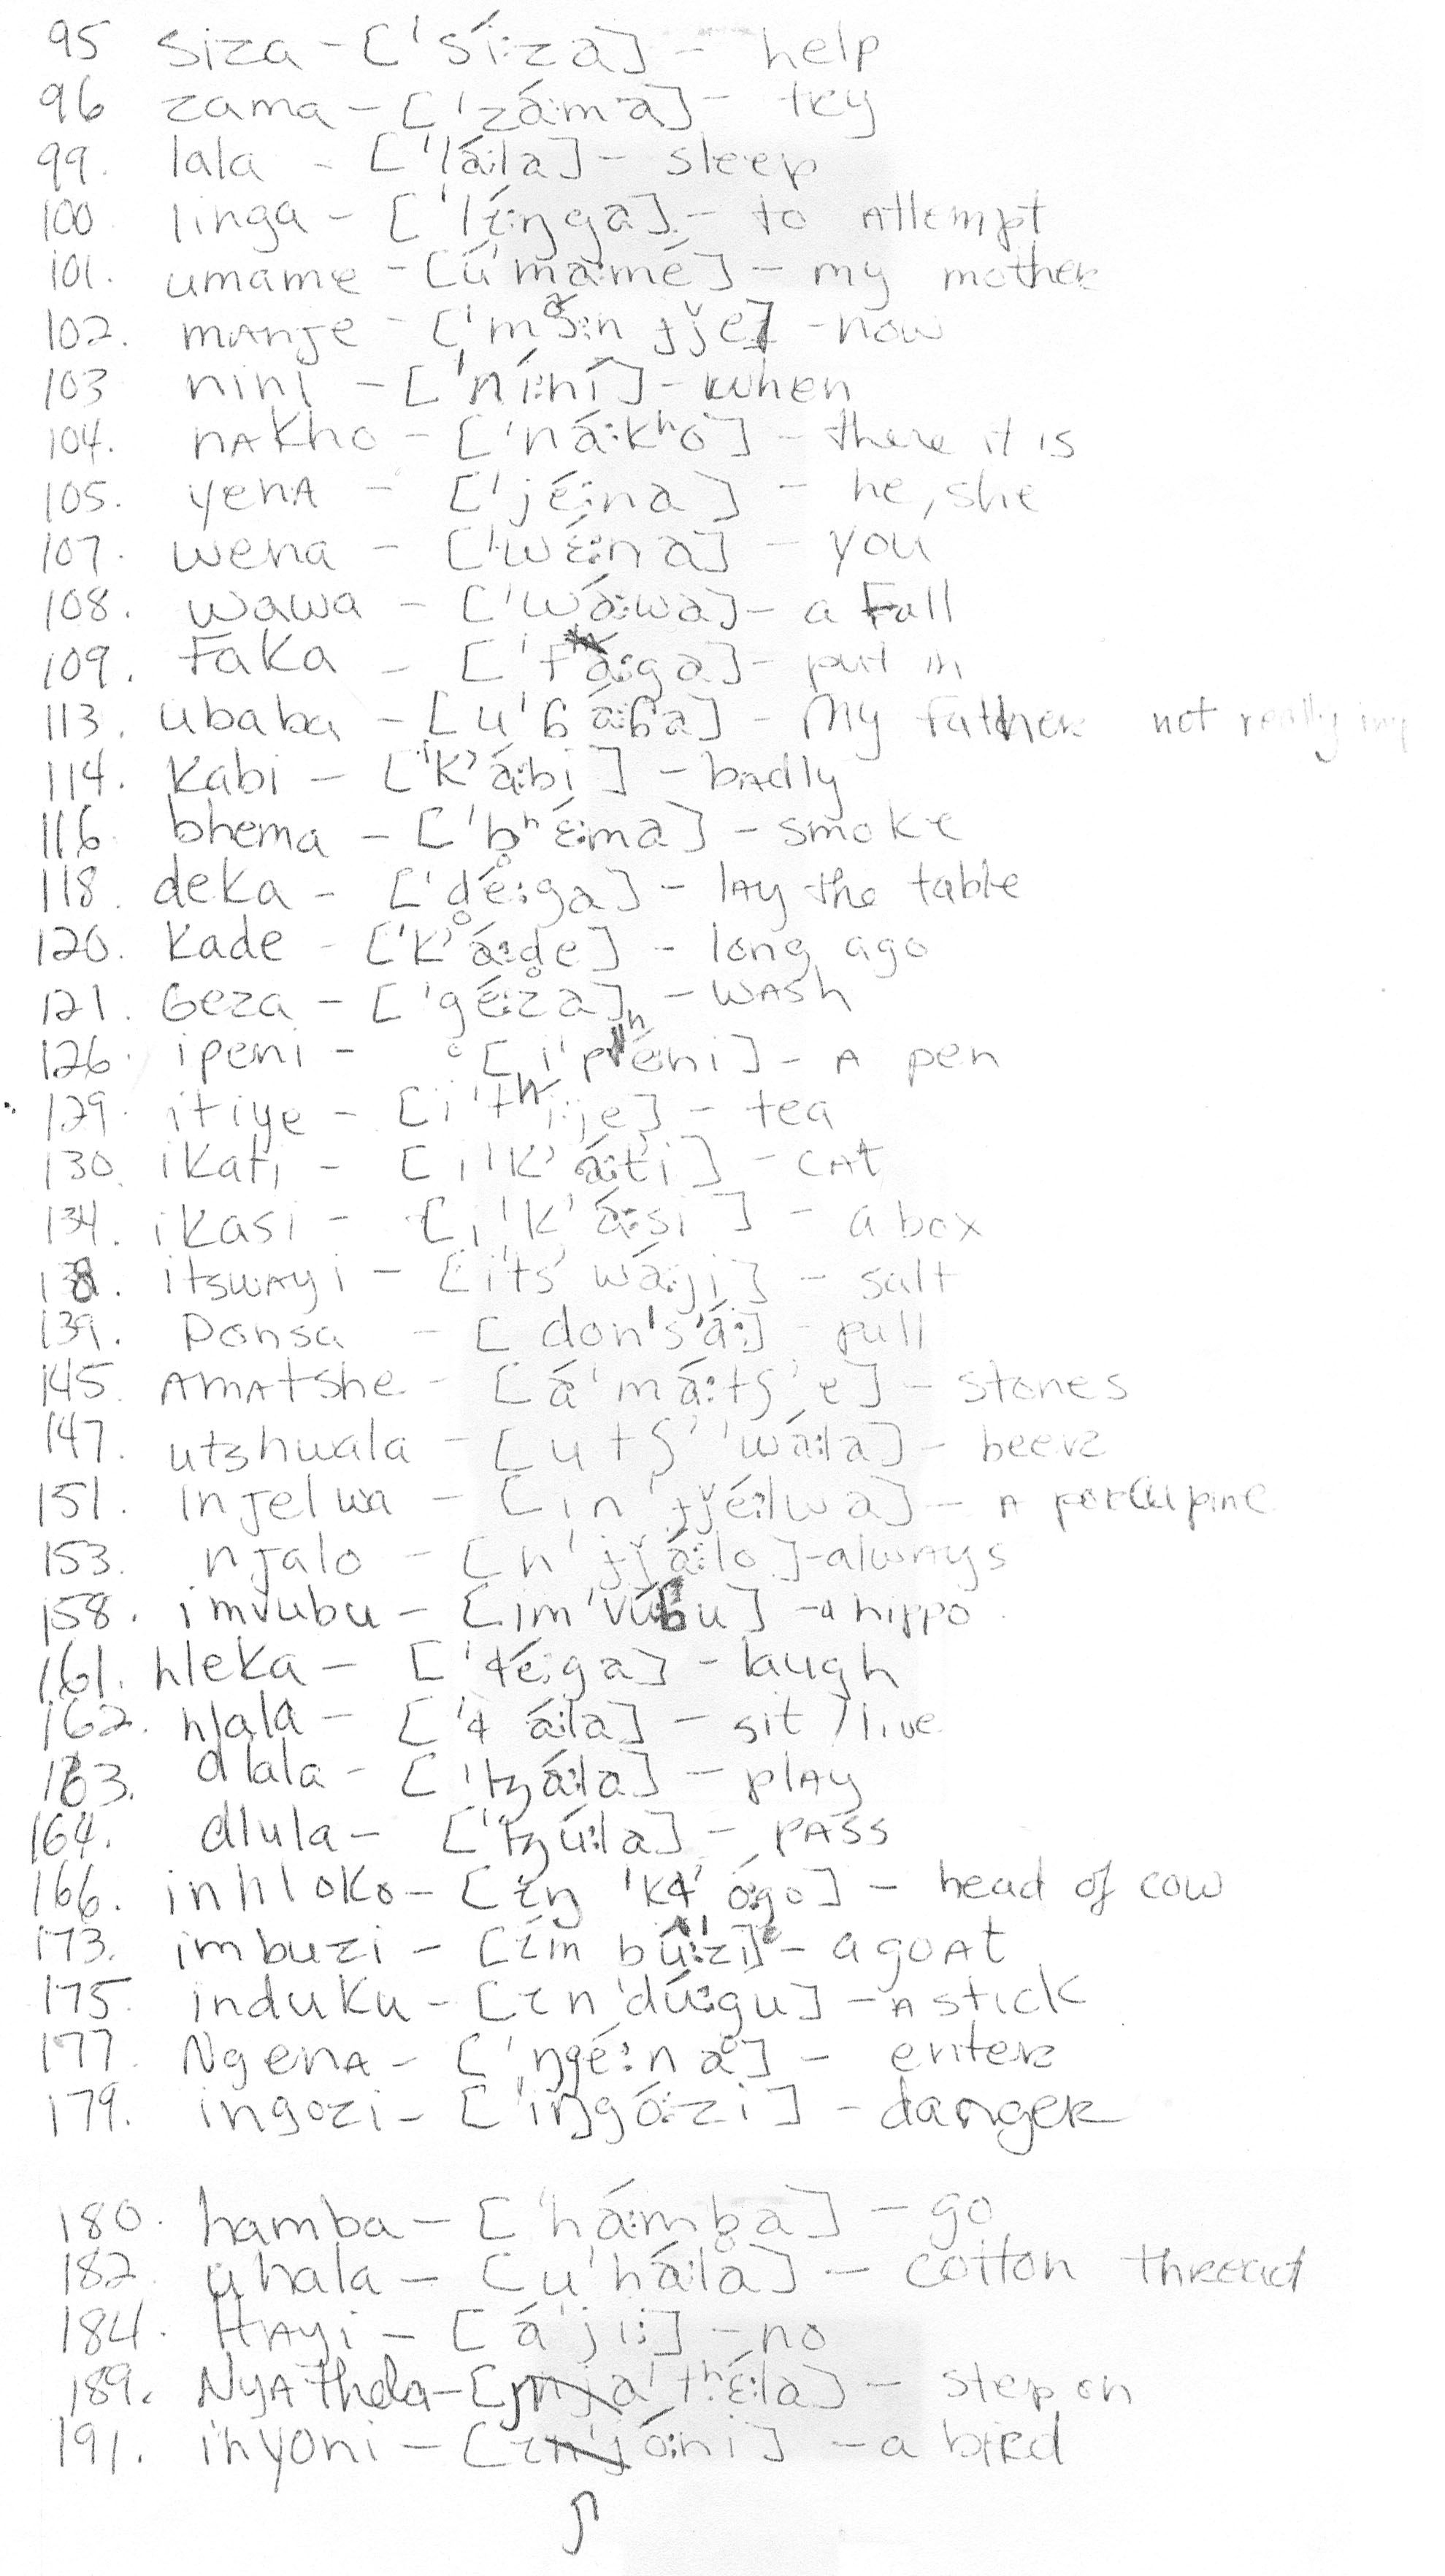 95 siza - [ˈsíːza] - help
96 zama - [ˈzáːma] - try
99. lala - [ˈláːla] - sleep
100 linga - [ˈlɪ́ːŋga] - to Attempt
101. umame - [úˈmaːmé] - my mother
102. mAnje - [ˈmáːnɟʝe] - now
103 nini - [ˈníːní] - when
104. nAkho - [ˈnáːkʰo] - there it is
105. yenA - [ˈjéːna] - he, she
107. wena - [ˈwɛ́ːna] - you
108. wawa - [ˈwáːwa] - a Fall
109. Faka - [ˈfáːga] - put in
113. ubaba - [uˈɓáːɓa] - My father not really
114. Kabi - [ˈkʼáːbi] - bAdly
116 bhema - [ˈb̥ʰɛ́ːma] - smoke
118. deka - [ˈd̥éːga] - lAy the table
120. Kade - [ˈkʼáːd̥e] - long ago
121. Geza - [ˈg̊éːza] - wAsh
126. ipeni - [iˈpʰéːni] - A pen
129. itiye - [iˈtʰiːje] - tea
130. ikati - [iˈkʼáːtʼi] - cAt
134. ikasi - [iˈkʼáːsi] - a box
138. itswAyi - [iˈtsʼwáːji] - salt
139. Donsa - [donˈsʼáː] - pull
145. AmAtshe - [áˈmáːtʃʼe] - stones
147. utshwala - [utʃʼˈwáːla] - beer
151. injelwa - [inˈɟʝéːlwa] - A porcupine
153. njalo - [nˈɟʝáːlo] - alwAys
158. imvubu - [imˈvúːɓu] - a hippo
161. hleka - [ˈɬéːga] - laugh
162. hlala - [ˈɬáːla] - sit / live
163. dlala - [ˈɮáːla] - plAy
164. dlula - [ˈɮúːla] - pAss
166. inhloko - [ɪŋˈkɬʼóːgo] - head of cow
173. imbuzi - [ɪ́mbúːzi] - a goAt
175. induku - [ɪnˈdúːgu] - A stick
177. NgenA - [ˈŋgéːna] - enter
179. ingozi - [ˈiŋgóːzi] - danger
180. hamba - [ˈháːmb̥a] - go
182. uhala - [uˈháːla] - cotton thread
184. HAyi - [áˈjiː] - no
189. NyAthela - [ɲaˈtʰɛ́ːla] - step on
191. inyoni - [ɪˈɲóːni] - a bird